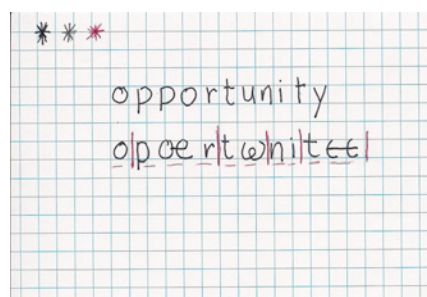 * * *
opportunity
o|pœr|tω|ni|tєє|